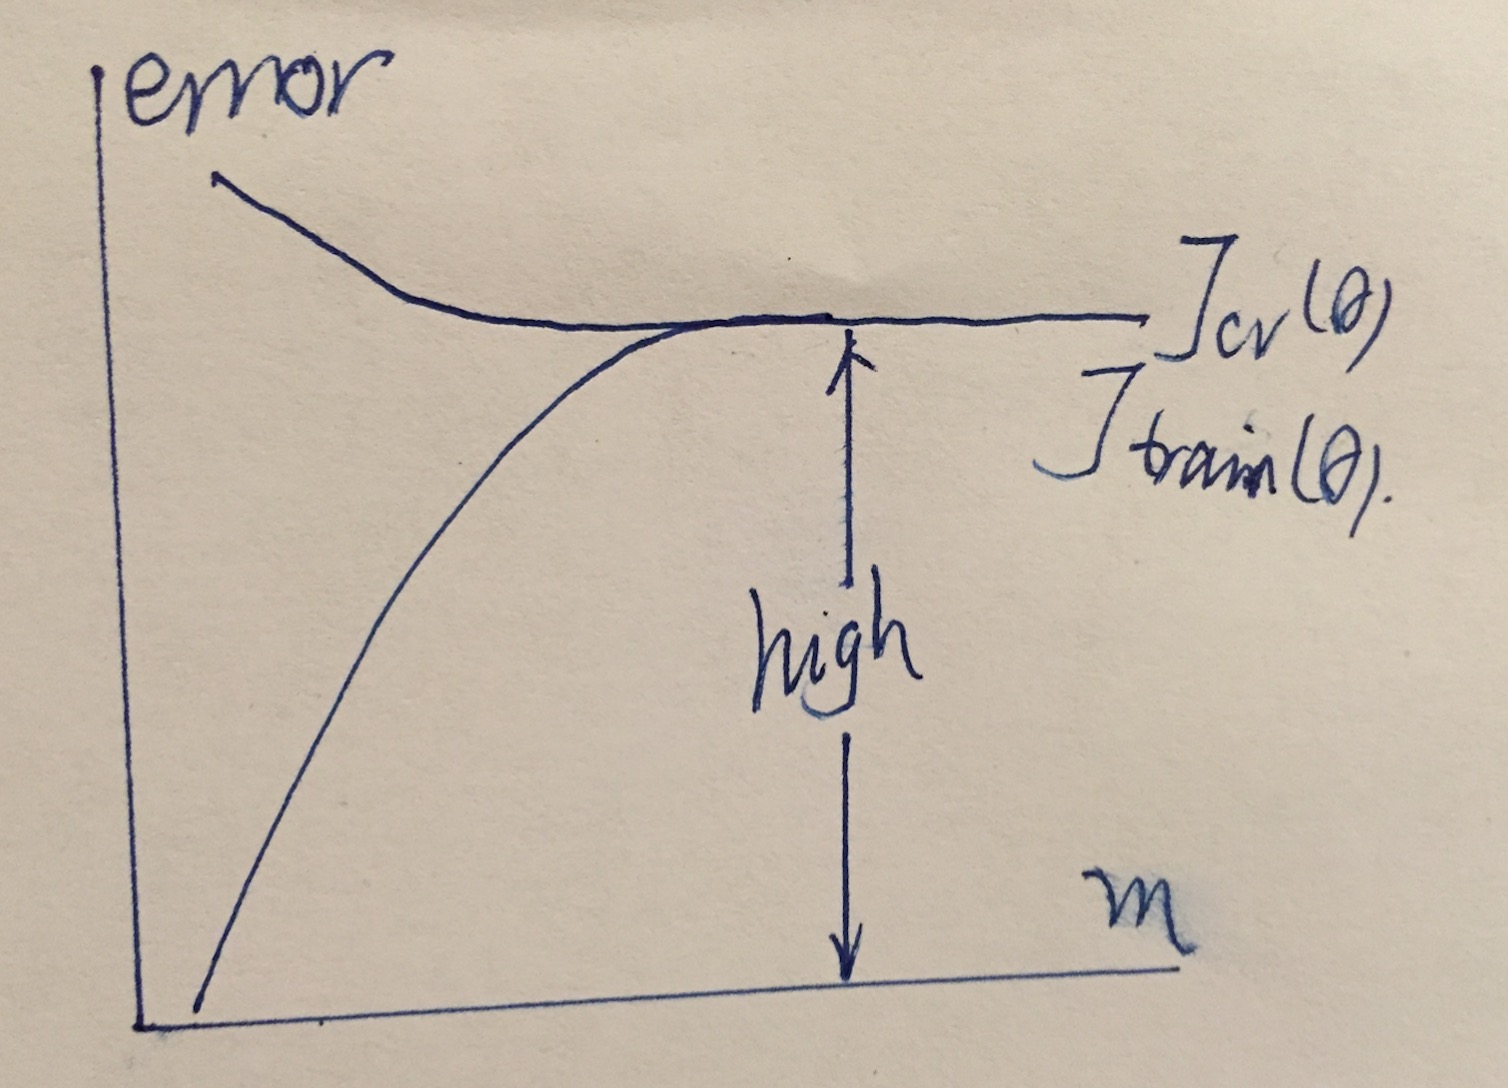 error
Jcv(θ)
Jtrain(θ).
high
m